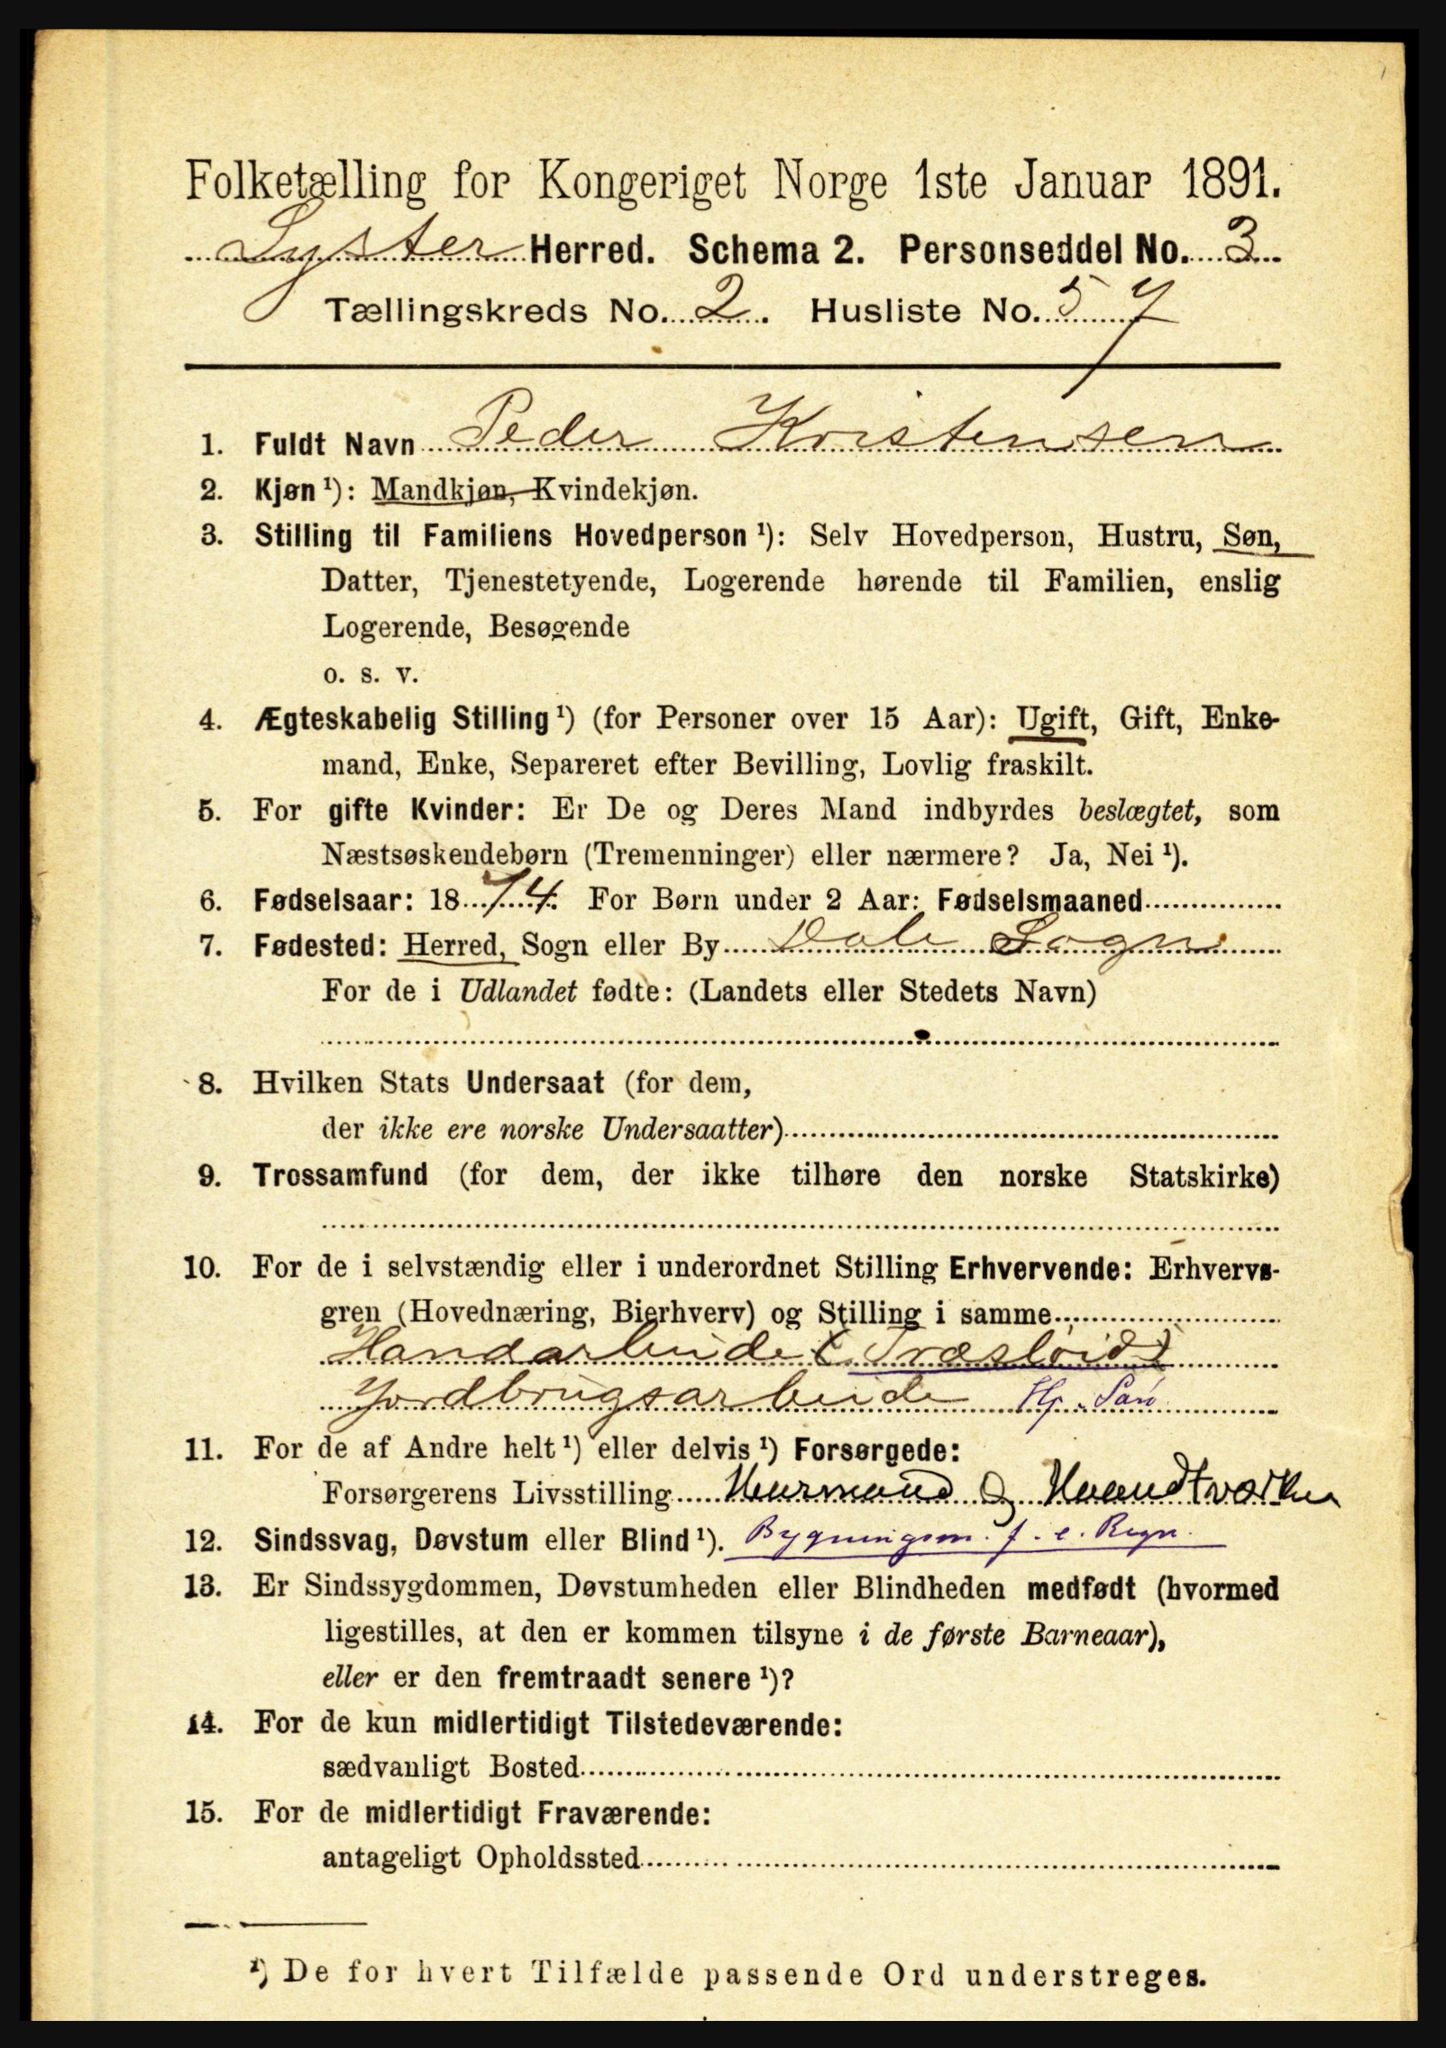 Folketælling for Kongeriget Norge 1ste Januar 1891.
Lyster Herred. Schema 2. Personseddel No. 3
Tællingskreds No. 2. Husliste No. 57
1. Fuldt Navn Peder Kristensen
2. Kjøn ¹): Mandkjøn, Kvindekjøn.
3. Stilling til Familiens Hovedperson ¹): Selv Hovedperson, Hustru, Søn,
Datter, Tjenestetyende, Logerende hørende til Familien, enslig
Logerende, Besøgende
o. s. v.
4. Ægteskabelig Stilling ¹) (for Personer over 15 Aar): Ugift, Gift, Enke-
mand, Enke, Separeret efter Bevilling, Lovlig fraskilt.
5. For gifte Kvinder: Er De og Deres Mand indbyrdes beslægtet, som
Næstsøskendebørn (Tremenninger) eller nærmere? Ja, Nei ¹).
6. Fødselsaar: 1874. For Børn under 2 Aar: Fødselsmaaned
7. Fødested: Herred, Sogn eller By Dale Sogn
For de i Udlandet fødte: (Landets eller Stedets Navn)
8. Hvilken Stats Undersaat (for dem,
der ikke ere norske Undersaatter)
9. Trossamfund (for dem, der ikke tilhøre den norske Statskirke)
10. For de i selvstændig eller i underordnet Stilling Erhvervende: Erhvervs-
gren (Hovednæring, Bierhverv) og Stilling i samme
Handarbeide (Træsløid)
Jordbrugsarbeide Hj. Søn
11. For de af Andre helt ¹) eller delvis ¹) Forsørgede:
Forsørgerens Livsstilling Huusmand og Haandtværker
12. Sindssvag, Døvstum eller Blind ¹). Bygningsm. f. e. Regn.
13. Er Sindssygdommen, Døvstumheden eller Blindheden medfødt (hvormed
ligestilles, at den er kommen tilsyne i de første Barneaar),
eller er den fremtraadt senere ¹)?
14. For de kun midlertidigt Tilstedeværende:
sædvanligt Bosted
15. For de midlertidigt Fraværende:
antageligt Opholdssted
¹) De for hvert Tilfælde passende Ord understreges.